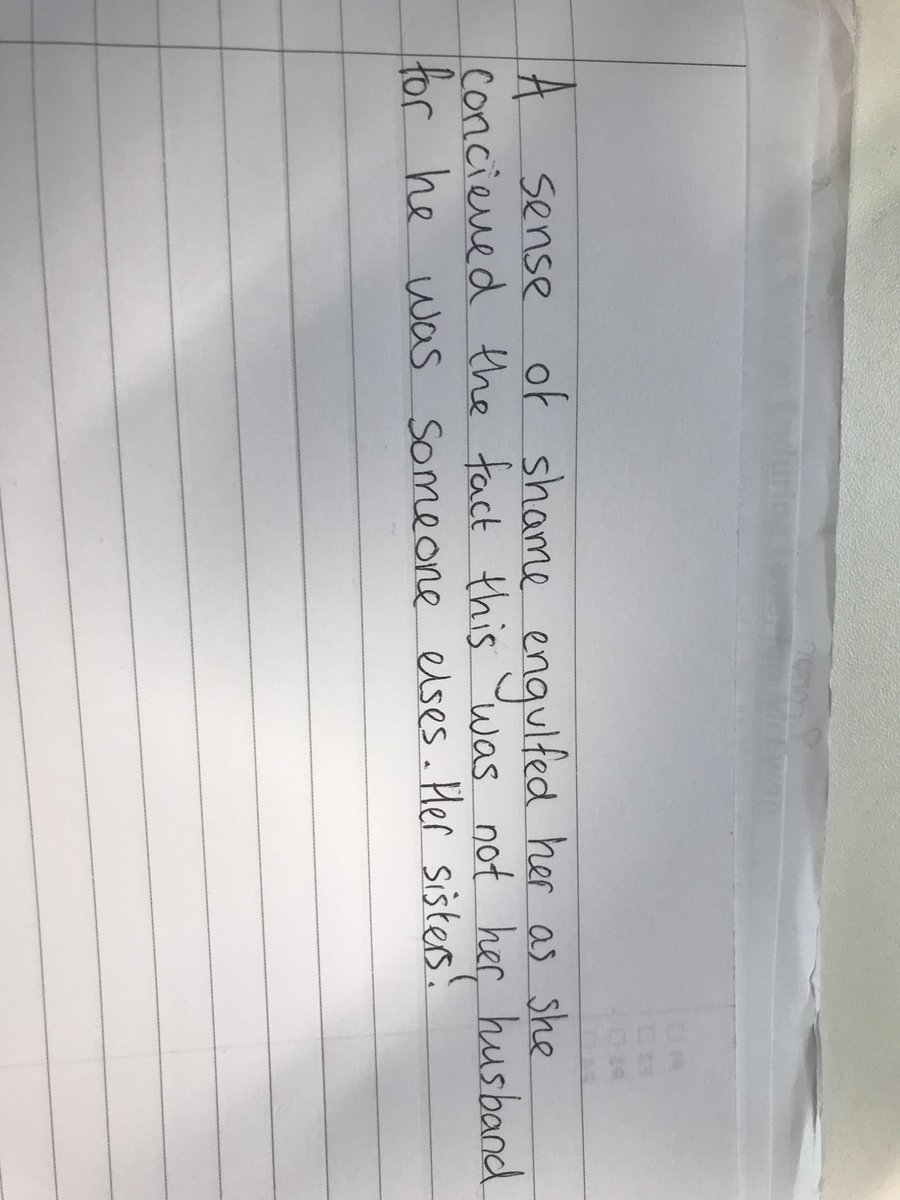 A sense of shame engulfed her as she
concieved the fact this was not her husband
for he was someone elses. Her sisters!